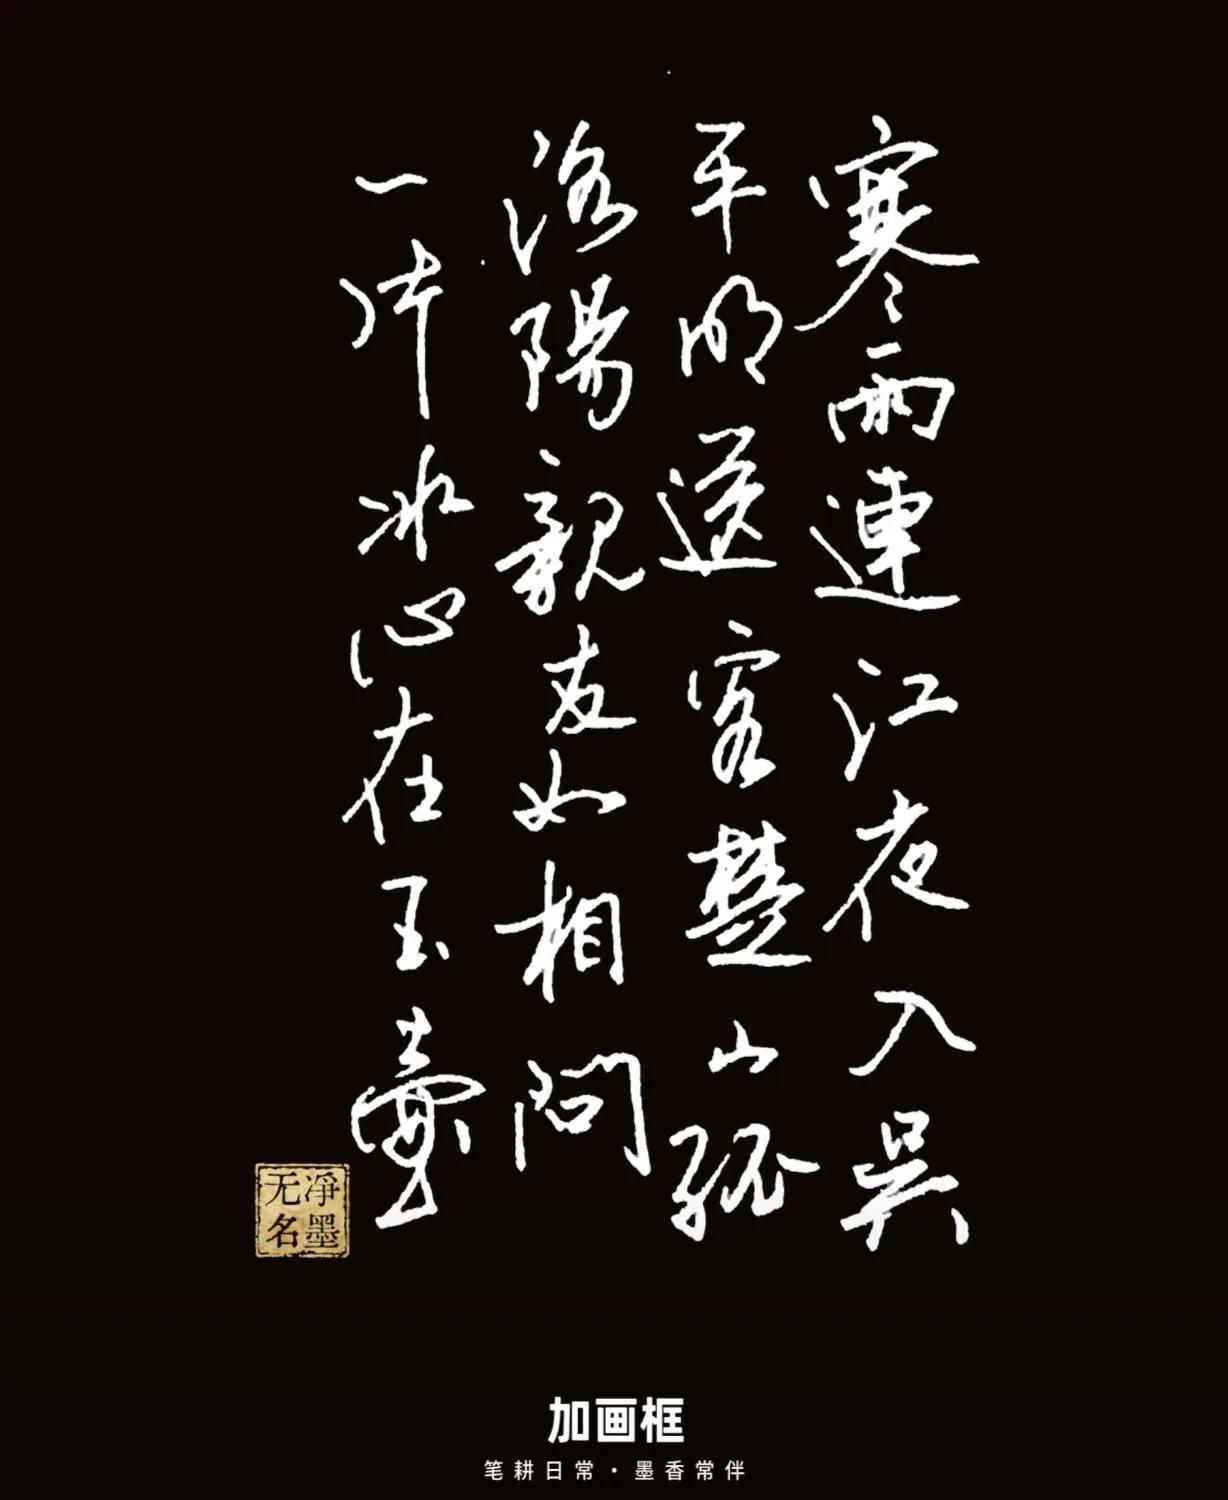 寒雨連江夜入吳
平明送客楚山孤
洛陽親友如相問
一片冰心在玉壺
凈墨
无名
加画框
笔耕日常·墨香常伴